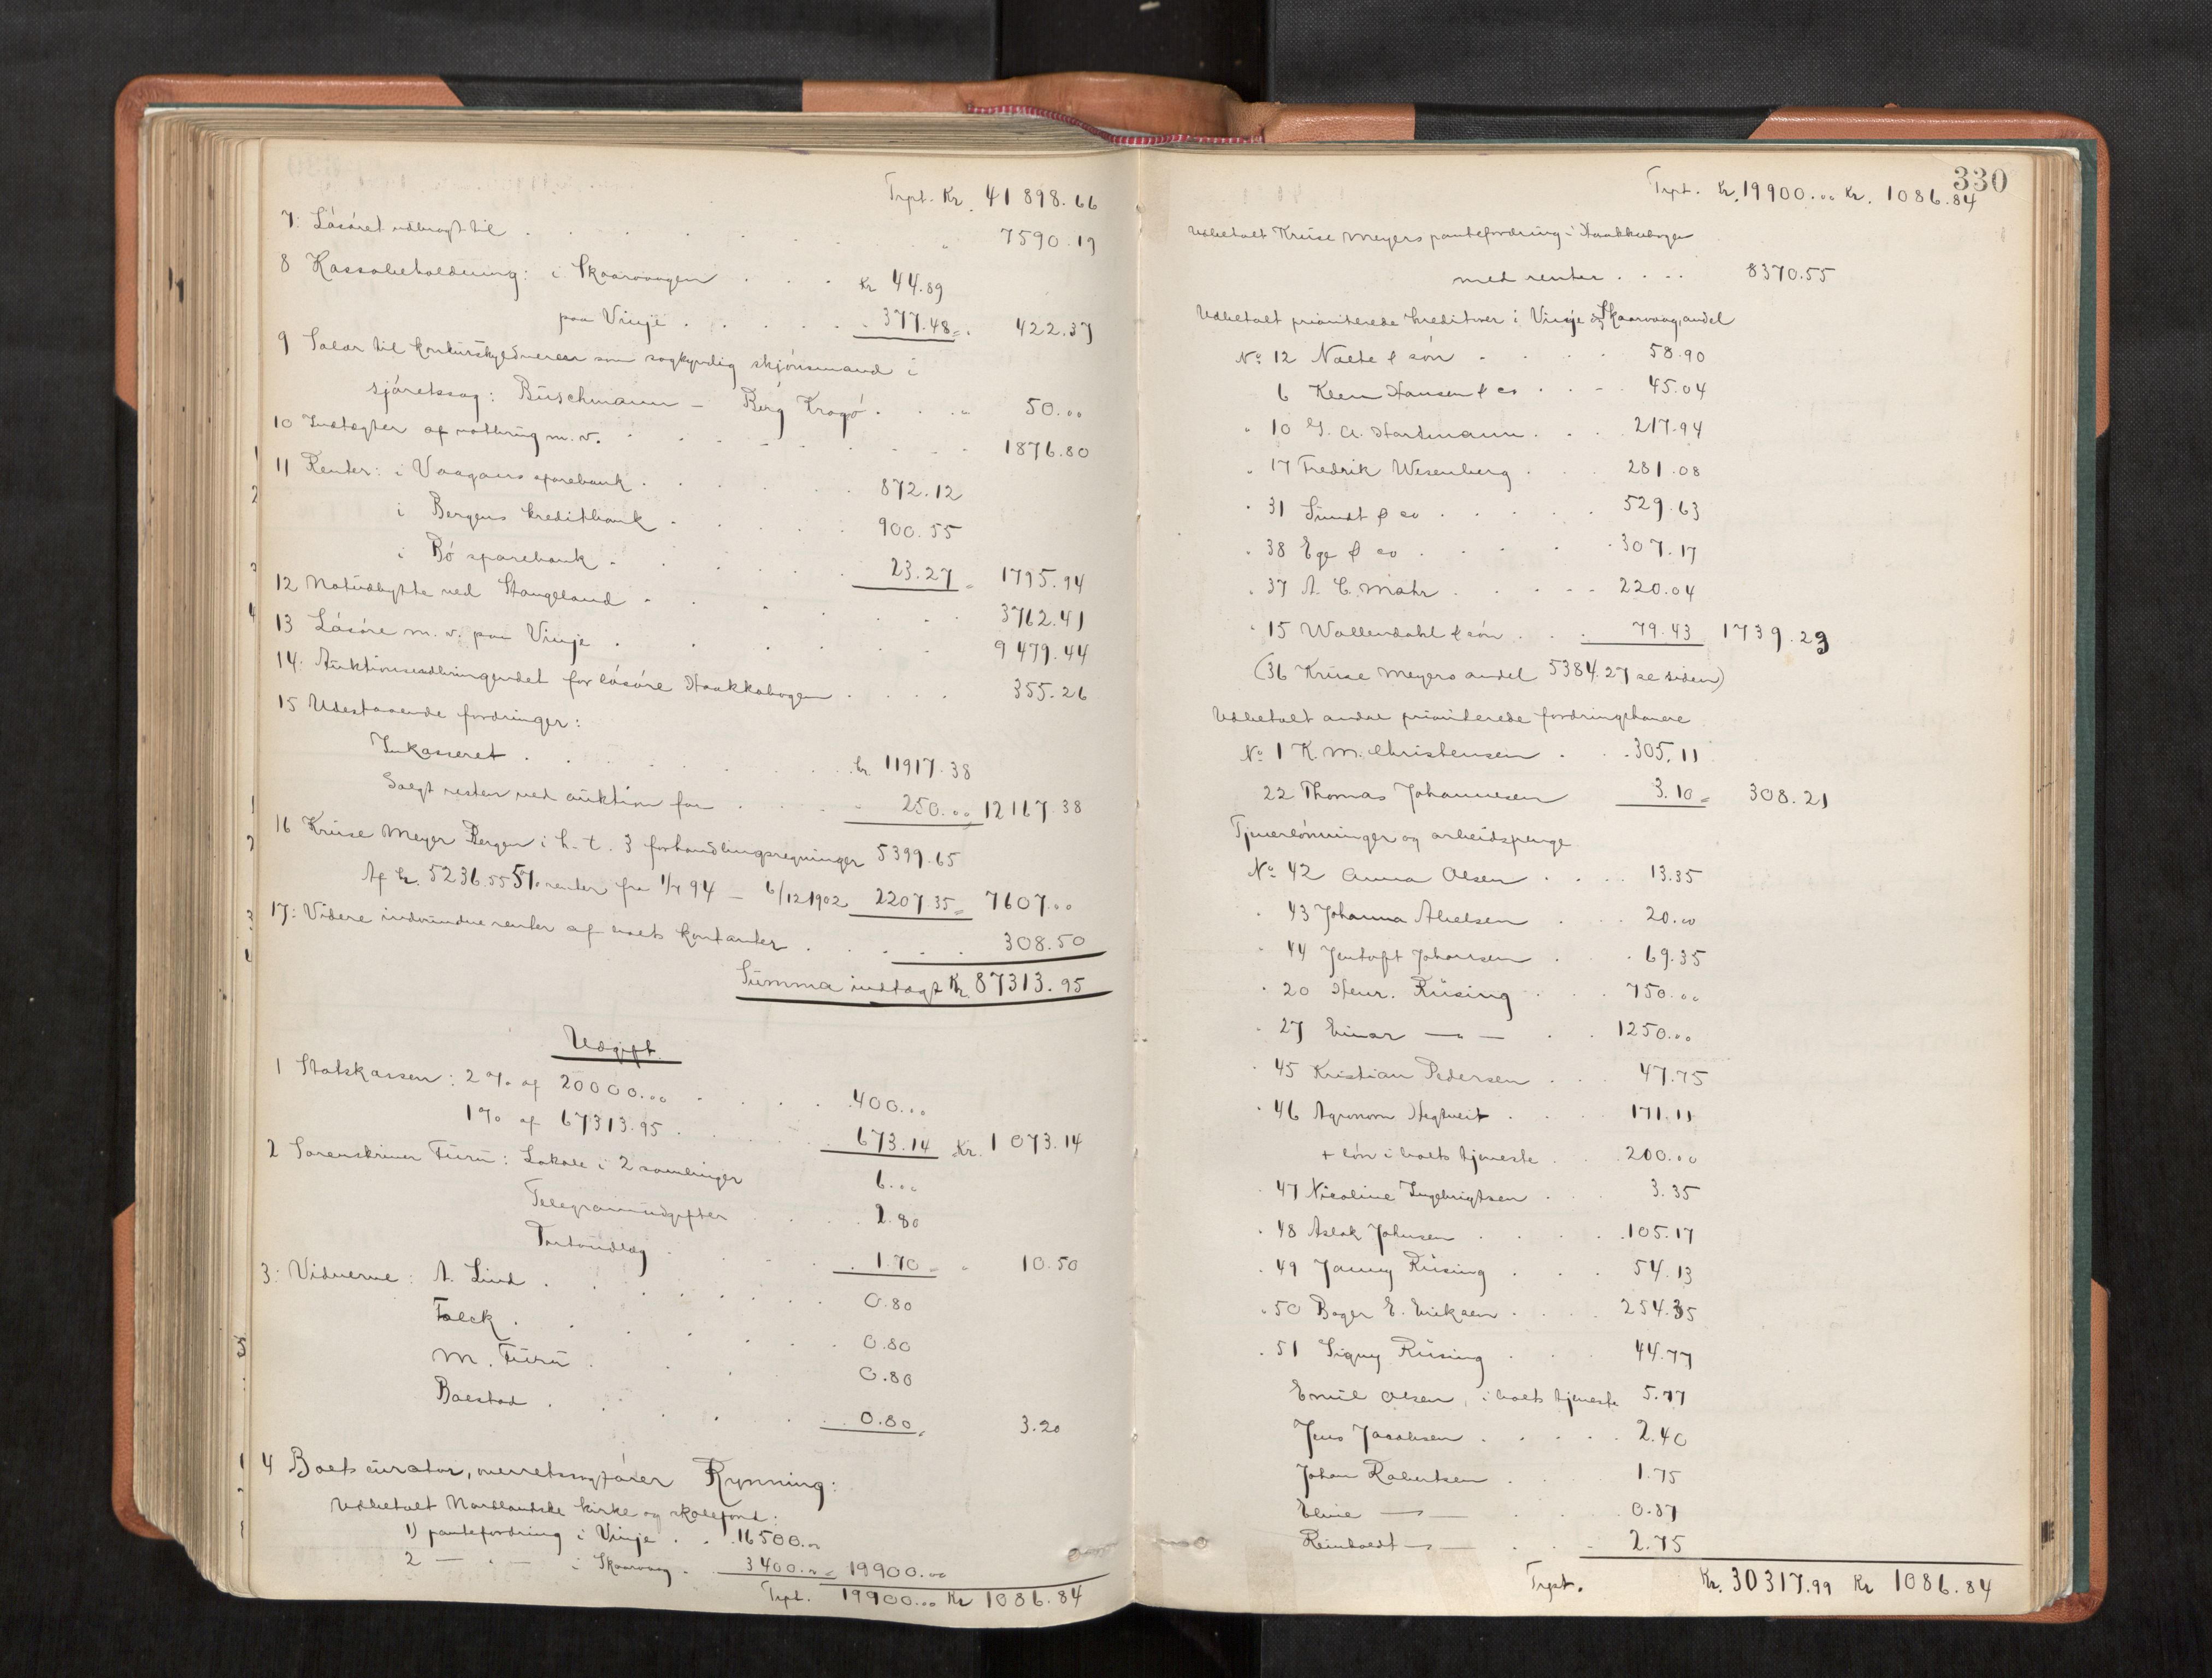 Trpt. Kr. 41 898.66
7: Lösöret udbragt til . . . . . " 7590.17
8 Kassabeholdning: i Skaarvaagen . . . Kr 44.89
paa Vinje . . . . . 377.48 = . 422.37
9 Salær til konkursskyldneren som sagkyndig skjönsmand i
sjöretssag: Buschmann – Berg Kragö . . . " 50.00
10 Indtægter af notbrug m.v. . . . . 1876.80
11 Renter: i Vaagans sparebank . . . . 872.12
i Bergens kreditbank . . . . 900.55
i Bö sparebank . . . . 23.27 = 1795.94
12 Notudbytte ved Stangeland . . . . 3762.41
13 Lösöre m. v. paa Vinje . . . . 9479.44
14: Auktionsudbringendet for lösöre Haakkabogen . . . . 355.26
15 Udestaaende fordringer:
Inkasseret . . . . . kr. 11917.38
Solgt resten ved auktion for . . . . 250.00 12167.38
16 Kruse Meyer Bergen i h. t. 3 forhandlingsregninger 5399.65
Af kr. 5236.55 5% renter fra 1/7 94 – 6/12 1902 2207.35 = 7607.00
17: Videre indvundne renter af boets kontanter . . . . 308.50
Summa indtægt Kr. 87313.95
Udgift.
1 Statskassen: 2% af 20000.00 . . . . 400.00
1% af 67313.95 . . . . 673.14 Kr. 1073.14
2 Sorenskriver Furu: Lokale i 2 samlinger 6.00
Telegramudgifter . . . 2.80
Portoudlæg . . . . 1.70 = " 10.50
3: Vidnerne: A. Lind . . . . . 0.80
Falck . . . . . 0.80
M. Furu . . . . 0.80
Bolstad . . . . . 0.80 = 3.20
4 Boets curator, overretssagförer Rynning:
Udbetalt Nordlandske kirke og skolefond:
1) pantefordring i Vinje . . 16500.00
2 — " — i Skaarvaag . 3400.00 = 19900.00
Trpt. 19900.00 Kr 1086.84
330
Trpt. Kr. 19900.00 Kr. 1086.84
Udbetalt Kruse Meyers pantefordring i Haakkabogen
med renter . . . . 8370.55
Udbetalt prioriterede kreditorer i Vinje og Skaarvaag, andel
No 12 Nolte & sön . . . . 58.90
6 Klem Hansen & co . . . 45.04
" 10 G. A. Hartmann . . . 217.94
" 17 Fredrik Wesenberg . . . 281.08
" 31 Sundt & co . . . . . 529.63
" 38 Ege & co . . . . . 307.17
" 37 A. C. Mohr . . . . . 220.04
" 15 Wallendahl & sön . . . 79.43 1739.23
(36 Kruse Meyers andel 5384.27 se siden)
Udbetalt andre prioriterede fordringshavere
No 1 K. M. Christensen . . 305.11
22 Thomas Johannesen 3.10 = 308.21
Tjenerlönninger og arbeidspenge
No 42 Anna Olsen . . . . 13.35
" 43 Johanna Abelsen . . . 20.00
" 44 Jentoft Johansen . . 69.35
" 20 Henr. Rüsing . . . 750.00
" 27 Einar — " — . . 1250.00
" 45 Kristian Pedersen . . . 47.75
" 46 Agronom Hegtveit . . . 171.11
+ lön i boets tjeneste . . 200.00
" 47 Nicoline Ingebrigtsen . . . 3.35
" 48 Aslak Johnsen . . . . 105.17
" 49 Janny Rüsing . . . 54.13
" 50 Bager E. Eriksen . . . . 254.35
" 51 Signy Rüsing . . . 44.77
Emil Olsen, i boets tjeneste 5.77
Jens Jacobsen . . . . . 2.40
Johan Robertsen . . . 1.75
Eline — " — . . . 0.87
Reinholdt — " — . . . 2.75
Trpt. Kr. 30317.99 Kr 1086.84